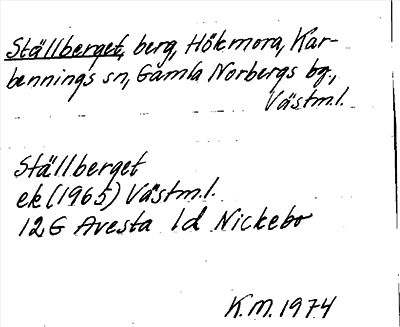 Ställberget, berg, Hökmora, Kar-
bennings sn, Gamla Norbergs bg.,
Västml.
Ställberget
ek (1965) Västml.
12G Avesta 1d Nickebo
K.M. 1974